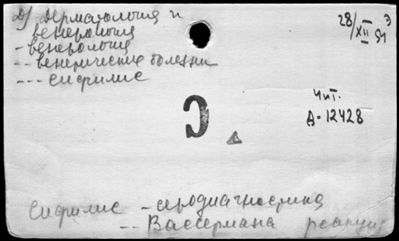 Д) Дерматология и
венерология
- венерология
-- венерические болезни
--- сифилис
28/XII 51
3
Чит.
А-12428
С
Сифилис - серодиагностика
-- Вассермана реакция